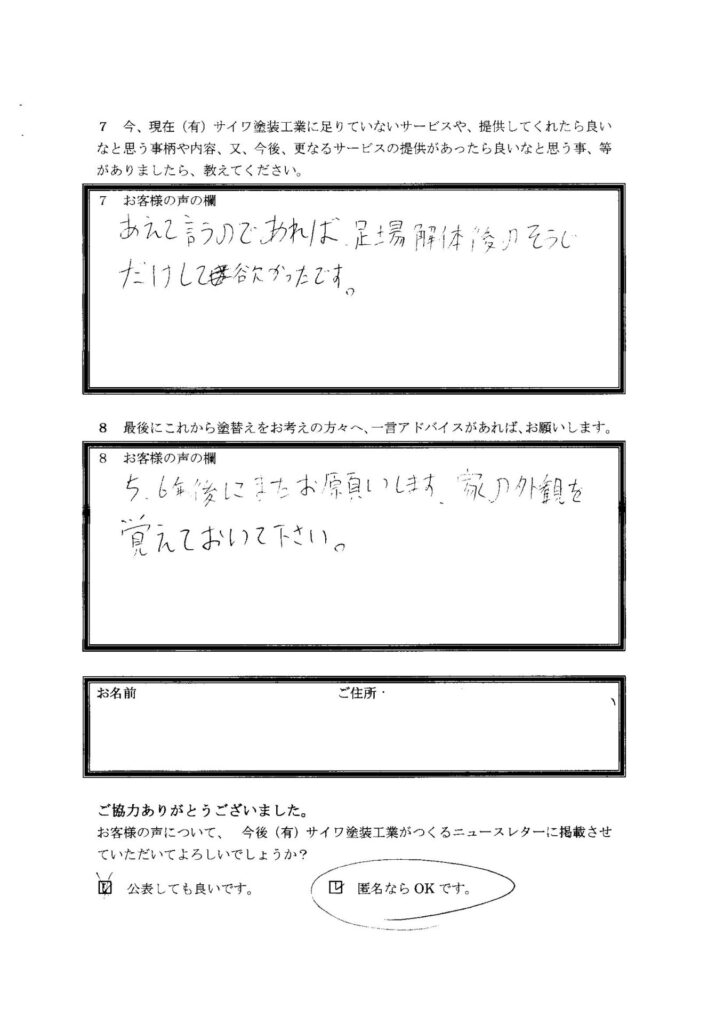 7 今、現在（有）サイワ塗装工業に足りていないサービスや、提供してくれたら良い
なと思う事柄や内容、又、今後、更なるサービスの提供があったら良いなと思う事、等
がありましたら、教えてください。
7 お客様の声の欄
あえて言うのであれば、足場解体後のそうじ
だけして欲かったです。
8 最後にこれから塗替えをお考えの方々へ、一言アドバイスがあれば、お願いします。
8 お客様の声の欄
5、6年後にまたお願いします、家の外観を
覚えておいて下さい。
お名前 ご住所・
ご協力ありがとうございました。
お客様の声について、 今後（有）サイワ塗装工業がつくるニュースレターに掲載させ
ていただいてよろしいでしょうか？
公表しても良いです。 匿名なら OK です。